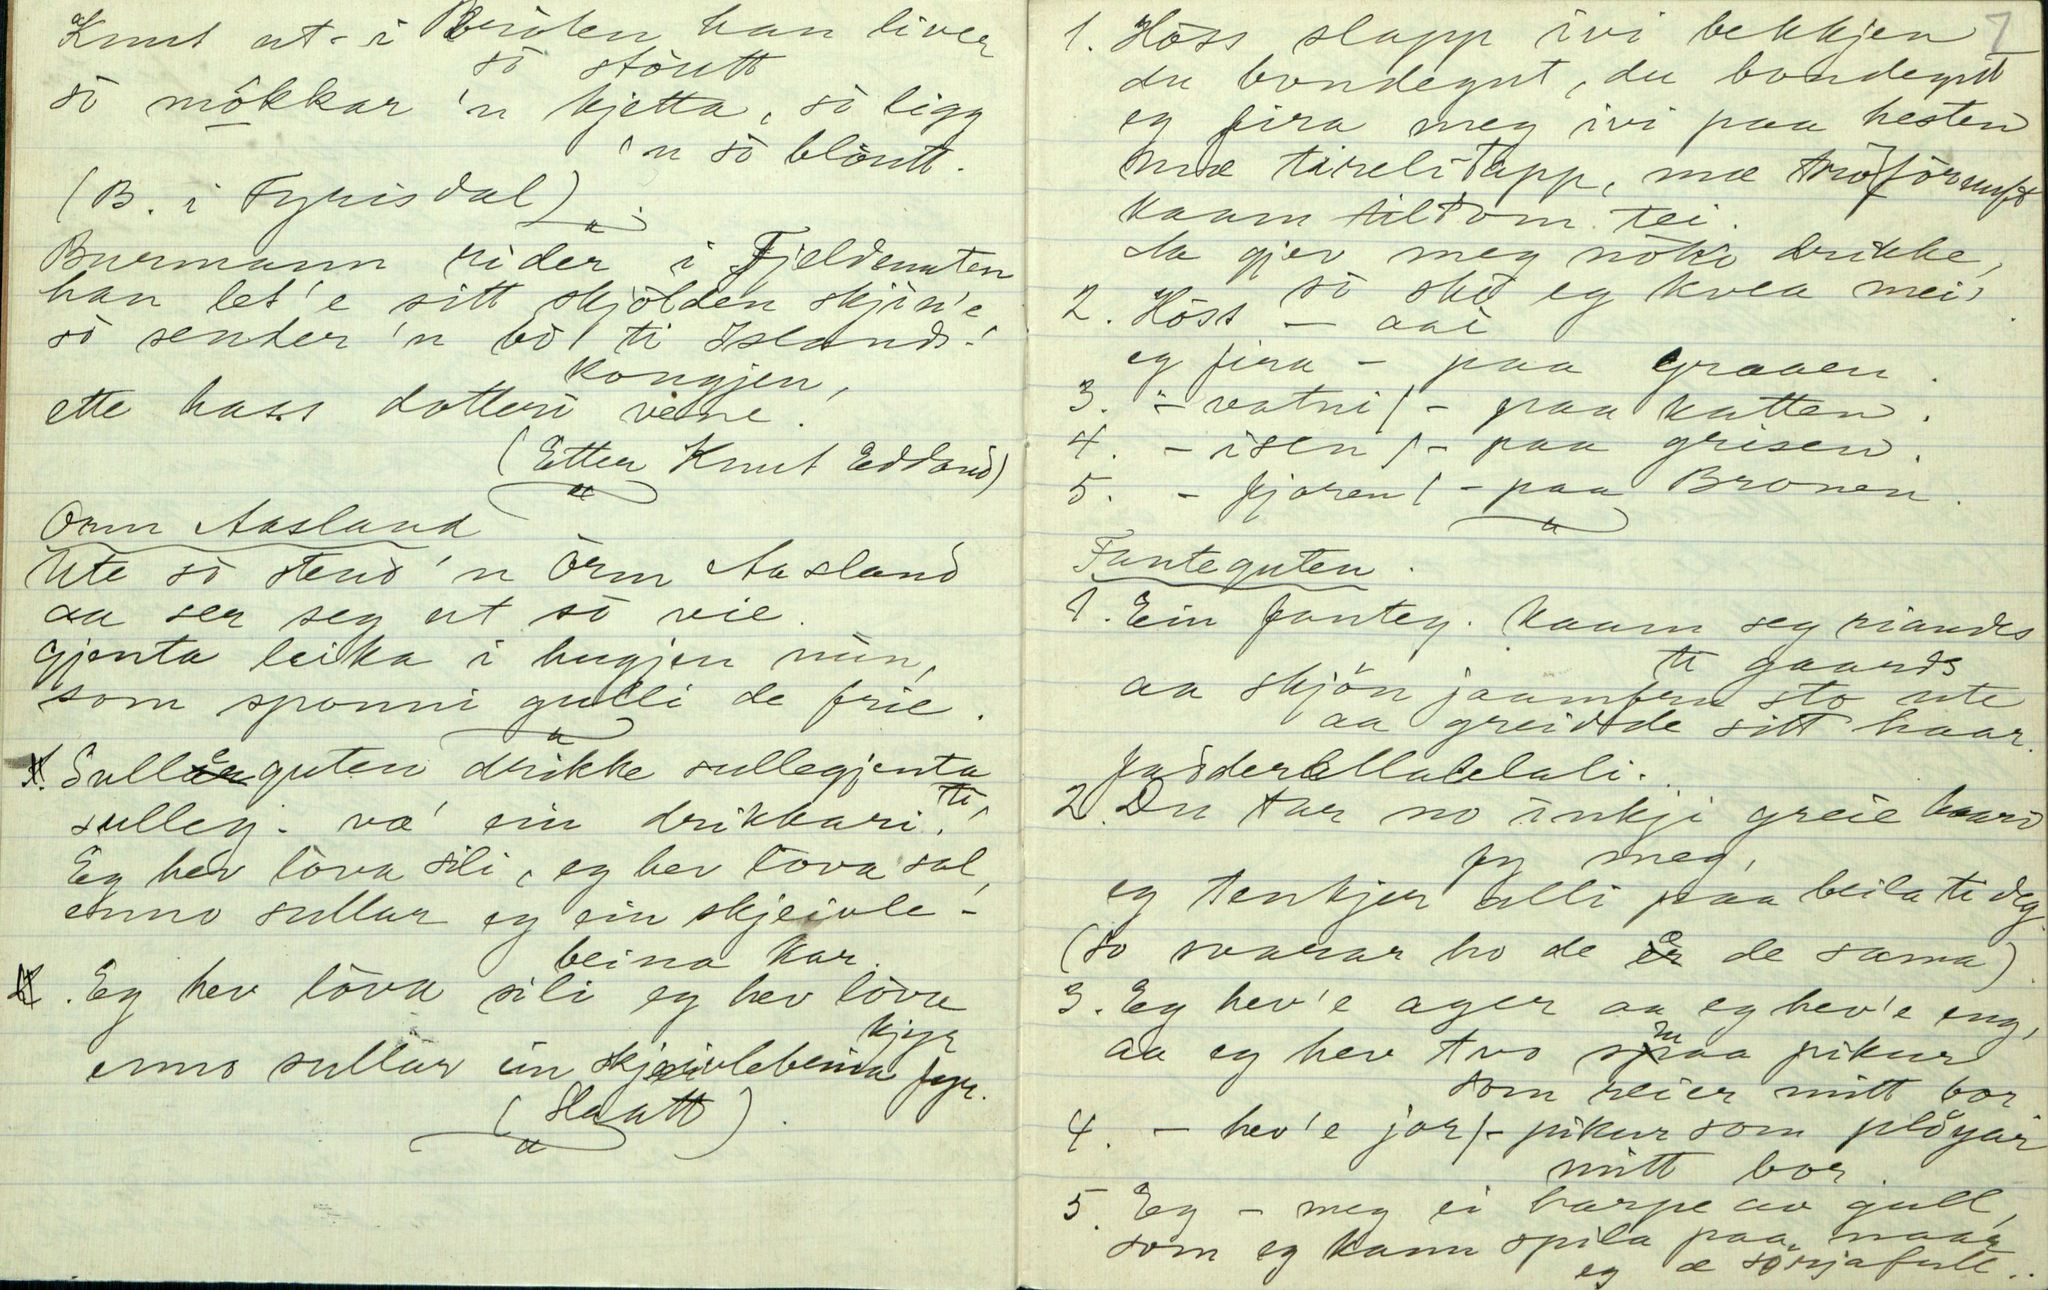 Knut ut-i Bröten han liver
so stöutt
so mökkar 'n kjetta, so ligg
'n so blöutt.
(B. i Fyrisdal)
Burmann rider i Fjeldnuten
han let'e sitt skjölden skjin'e
so sender 'n bö ti Islands-
kongjen,
ette hass dotteri vene!
(Etter Knut Edland)
Orm Aasland
Ute so stend 'n Orm Aasland
aa ser seg ut so vie.
Gjenta leika i hugjen min,
som sponni gulli de frie.
1. Sulleguten drikke sullegjenta
ti,
sulleg. va' ein drikkari!
Eg hev löva sili, eg hev löva sal,
enno sullar eg ein skjeivle-
beina kar.
2. Eg hev löva sili eg hev löva
kjyr
enno sullar ein skjeivlebeina fyr.
(Slaatt)
7
1. Höss slapp ivi bekkjen
du bondegut, du bondegut
eg fira meg ivi paa hesten
mæ tirelitapp, mæ
kaam
da gjev meg nöko drikke,
so ska eg kvea mei.
2. Höss – aai
eg fira – paa graaen.
3. – vatni / – paa katten.
4. – isen / – paa grisen.
5. – fjoren / – paa Bronen.
Fanteguten.
1. Ein fanteg. kaam seg riandes
ti gaards
aa skjön jaamfru sto ute
aa greidde sitt haar.
fadderallalelali.
2. Du tar no inkji greie haari
fy meg,
eg tenkjer alli paa beila ti deg.
(so svarar ho de de sama)
3. Eg hev'e ager aa eg hev'e eng,
aa eg hev tvo smaa pikur
som reier mitt bor
4. – hev'e jor / – pikur som plöyar
mitt bor
5. Eg – meg ei harpe av gull,
som eg kann spila paa, naar
eg æ sorjafull..